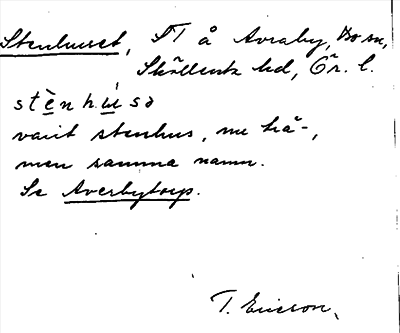 Stenhuset, ST å Avraby, Bo sn,
Skyllersta hd, Ör. l.
stènhùsə
varit stenhus, nu trä-,
men samma namn.
Se Averbytorp.
T. Ericson.